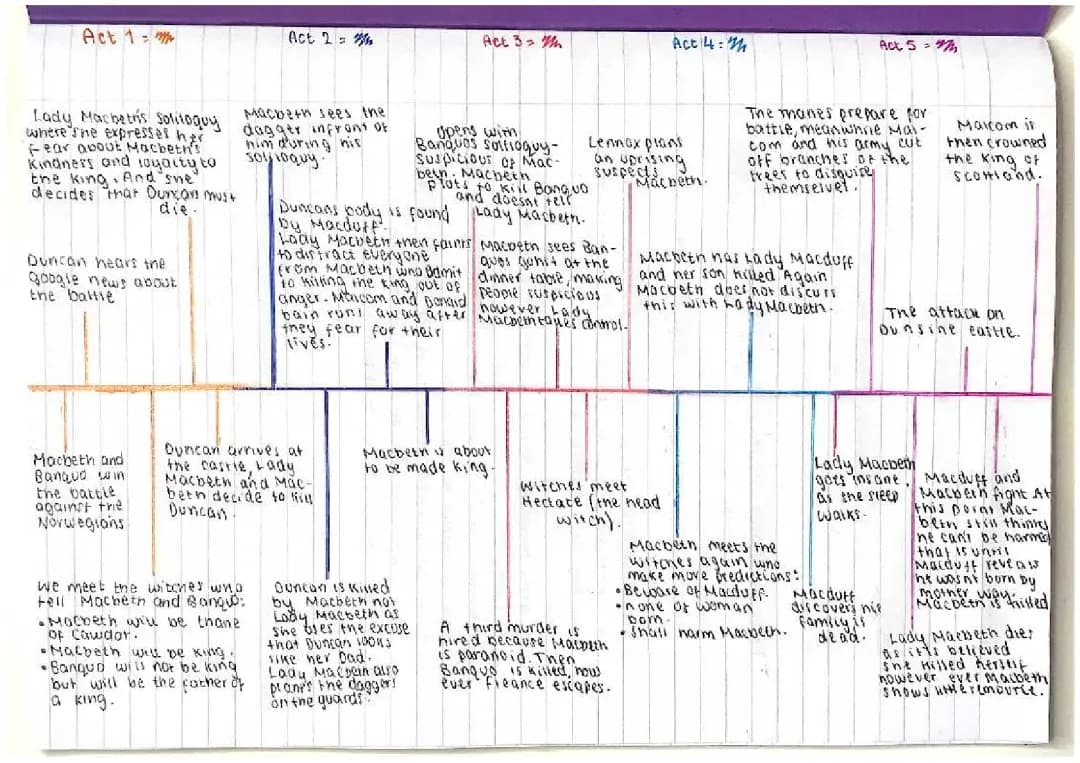 Act 1 =
Act 2 =
Act 3 =
Act 4 =
Act 5 =
Lady Macbeth's Soliloquy
where she expresses her
fear about Macbeth's
kindness and loyalty to
the king. And she
decides that Duncan must
die.
Duncan hears the
google news about
the battle
Macbeth sees the
dagger infront of
him during his
soliloquy.
Duncans body is found
by Macduff.
Lady Macbeth then faints
to distract everyone
from Macbeth who admit
to killing the king out of
anger - Malcom and Donald
bain runs away after
they fear for their
lives.
opens with
Banquos soliloquy-
suspicious of Mac-
beth. Macbeth
plots to kill Banquo
and doesnt tell
Lady Macbeth.
Macbeth sees Ban-
quos at the
dinner table, making
people suspicious
however Lady
Macbeth takes control.
Lennox plans
an uprising
suspects
Macbeth.
Macbeth has Lady Macduff
and her son killed Again
Macbeth does not discuss
this with Lady Macbeth.
The prepare for
battle, meanwhile Mal-
com and his army cut
off branches of the
trees to disguise
themselvef.
Malcom is
then crowned
the King of
Scotland.
The attack on
Dunsine castle.
Macbeth and
Banquo win
the battle
against the
Norwegians
Duncan arrives at
the castle, Lady
Macbeth and Mac-
beth decide to kill
Duncan.
Macbeth is about
to be made king.
Witches meet
Hectate (the head
witch).
Lady Macbeth
goes insane.
as she sleep
walks.
Macduff and
Macbeth fight At
this point Mac-
beth still thinks
he can't be harmed
that is until
Macduff reveals
he wasn't born by
mother way.
Macbeth is killed
We meet the witches who
tell Macbeth and Banquo:
• Macbeth will be thane
of Cawdor.
• Macbeth will be king.
• Banquo will not be king
but will be the father of
a king.
Duncan is killed
by Macbeth not
Lady Macbeth as
she uses the excuse
that Duncan looks
like her Dad.
Lady Macbeth also
plants the daggers
on the guards.
A third murder is
hired because Macbeth
is paranoid. Then
Banquo is killed, how
ever Fleance escapes.
Macbeth meets the
witches again who
make more predictions:
• Beware of Macduff.
• none of woman
born.
• Shall harm Macbeth.
Macduff
discovers his
family is
dead.
Lady Macbeth dies
as it's believed
she killed herself
however ever Macbeth
shows little remource.